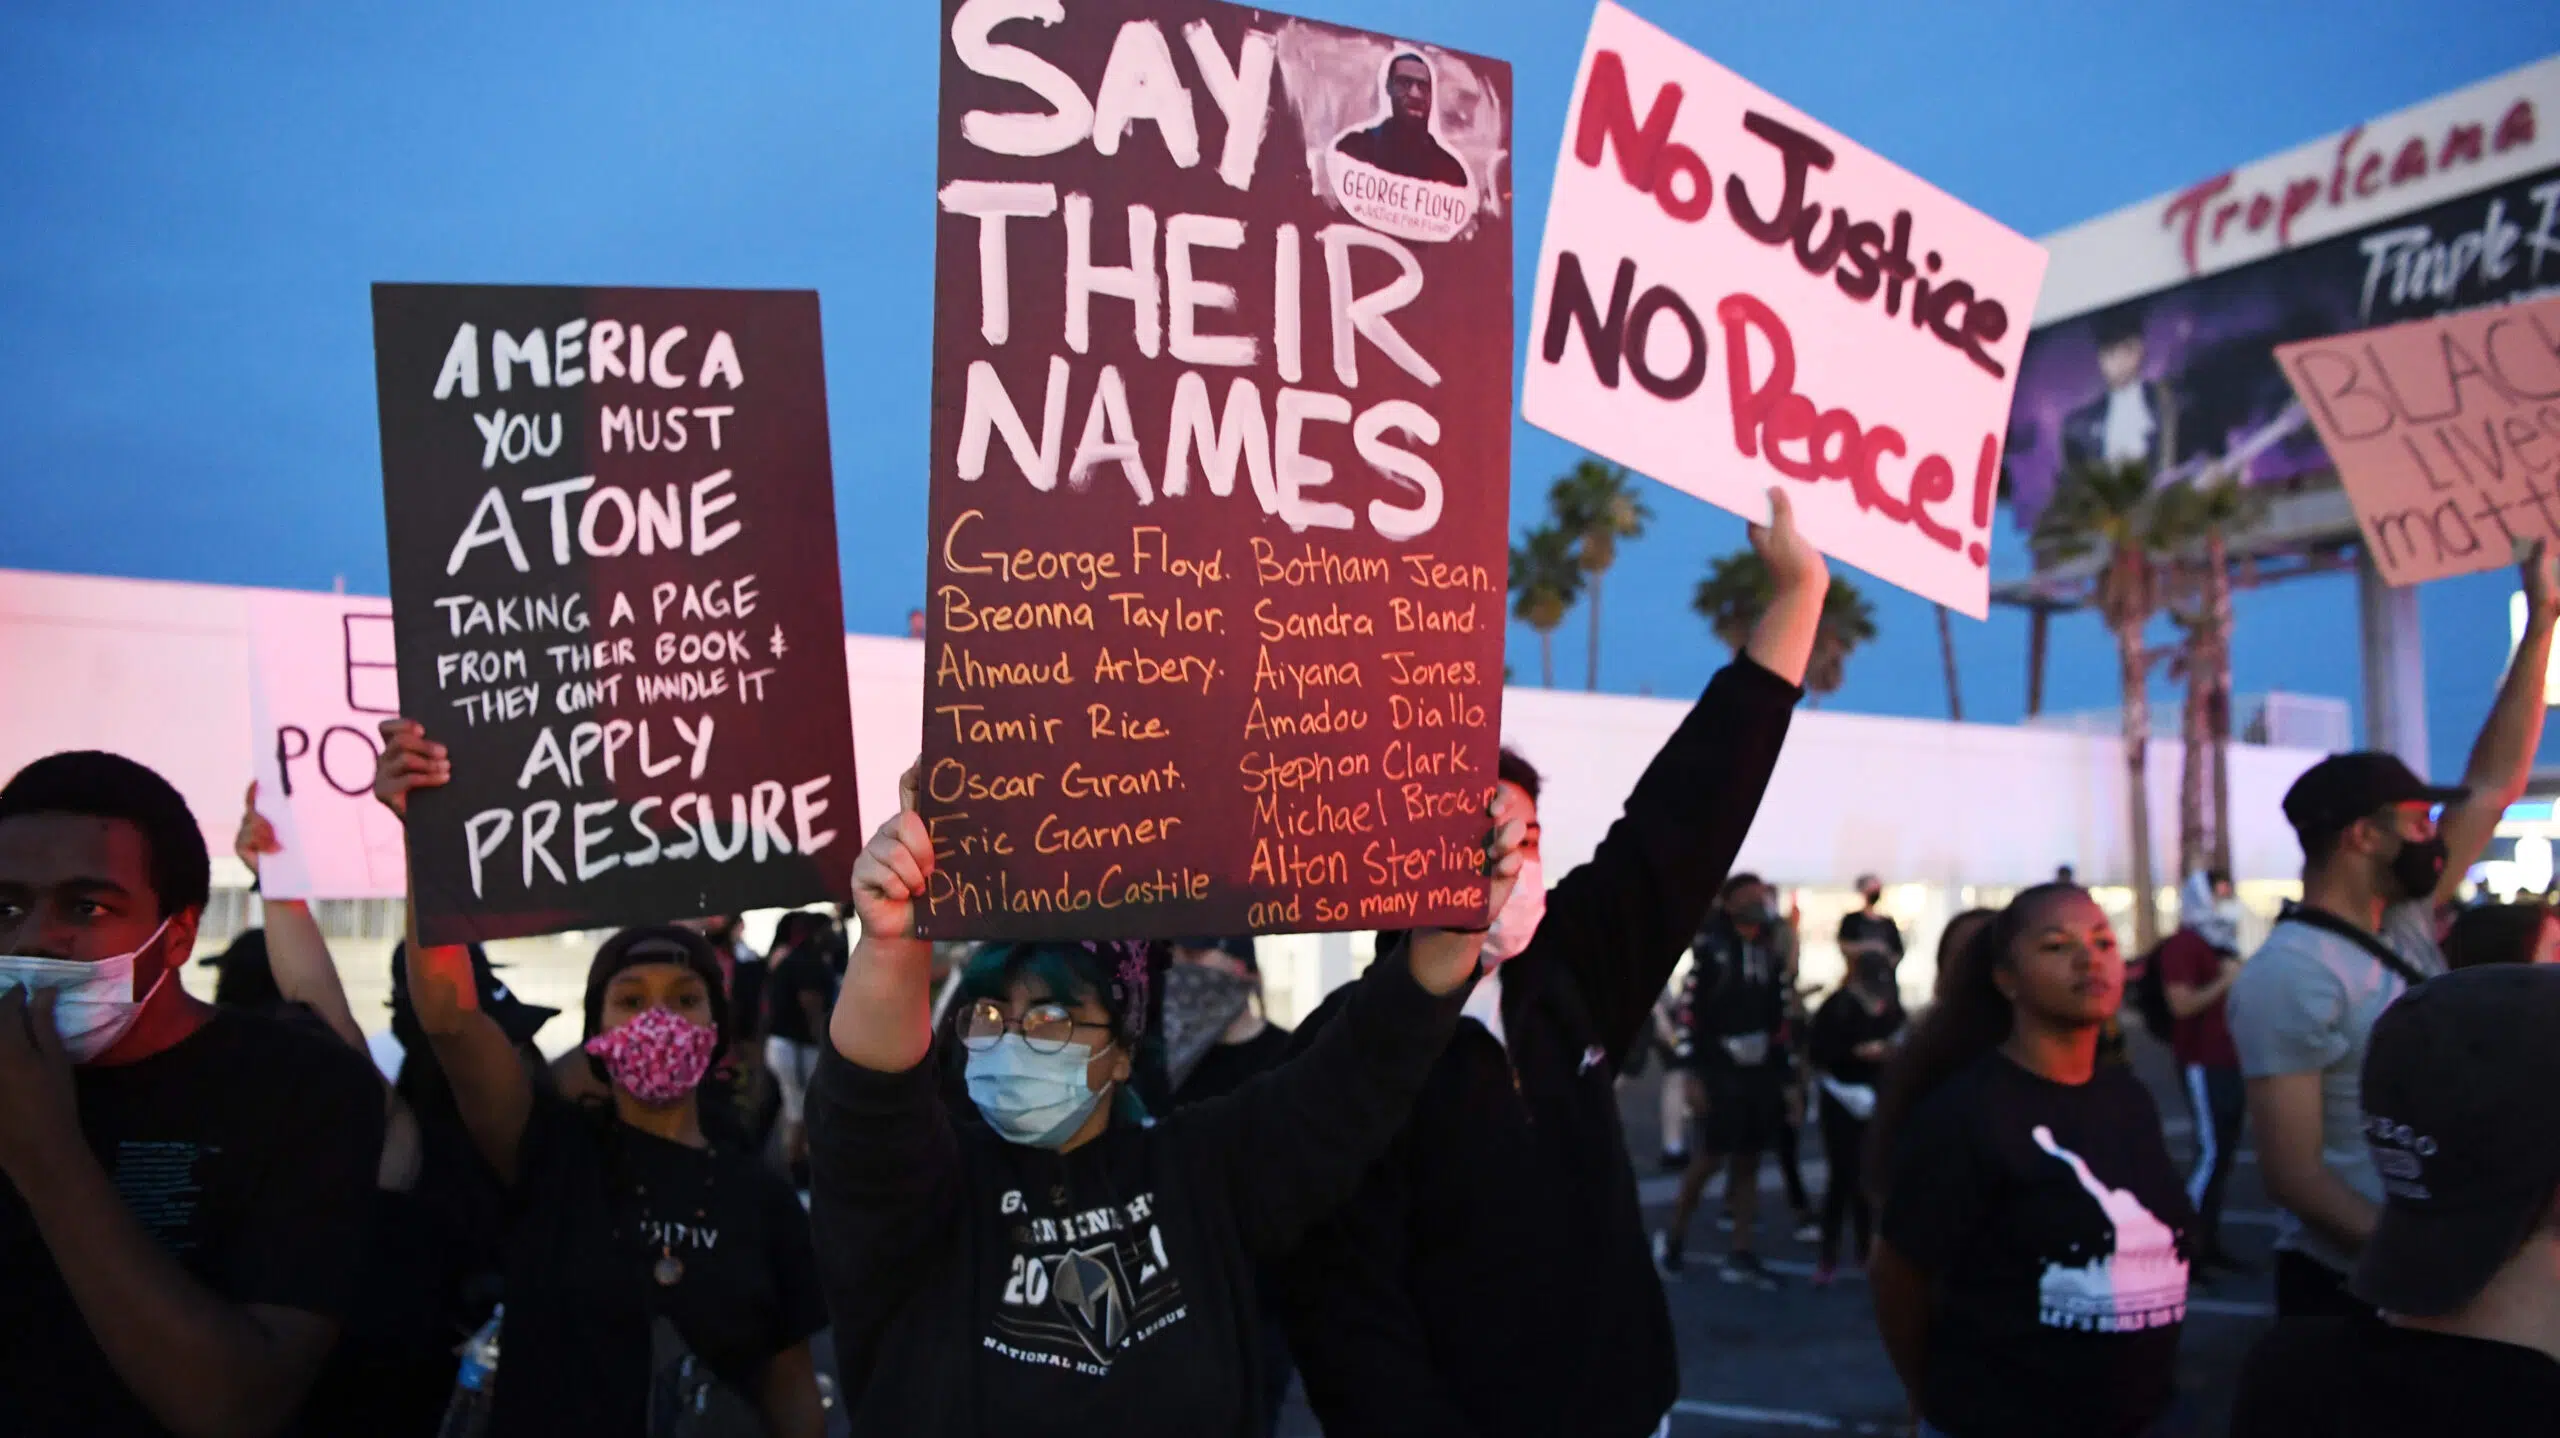 AMERICA
YOU MUST
ATONE
TAKING A PAGE
FROM THEIR BOOK &
THEY CANT HANDLE IT
APPLY
PRESSURE
SAY
THEIR
NAMES
GEORGE FLOYD
#JUSTICEFORFLOYD
George Floyd.
Breonna Taylor.
Ahmaud Arbery.
Tamir Rice.
Oscar Grant.
Eric Garner
Philando Castile
Botham Jean.
Sandra Bland.
Aiyana Jones.
Amadou Diallo.
Stephon Clark.
Michael Brown
Alton Sterling
and so many more.
No Justice
NO Peace!
Tropicana
Purple
BLACK
LIVES
matt
20
NATIONAL HOC Y LEAGUE
LET'S BUILD